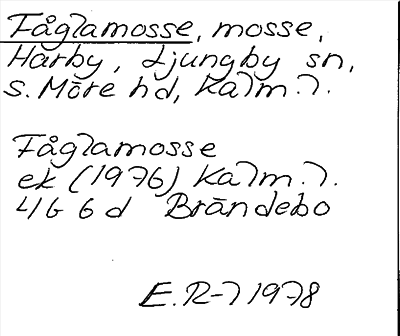 Fåglamosse, mosse,
Harby, Ljungby sn,
S. Möre hd, Kalm. l.
Fåglamosse
ek (1976) Kalm. l.
4G 6d Brändebo
E. R-l 1978